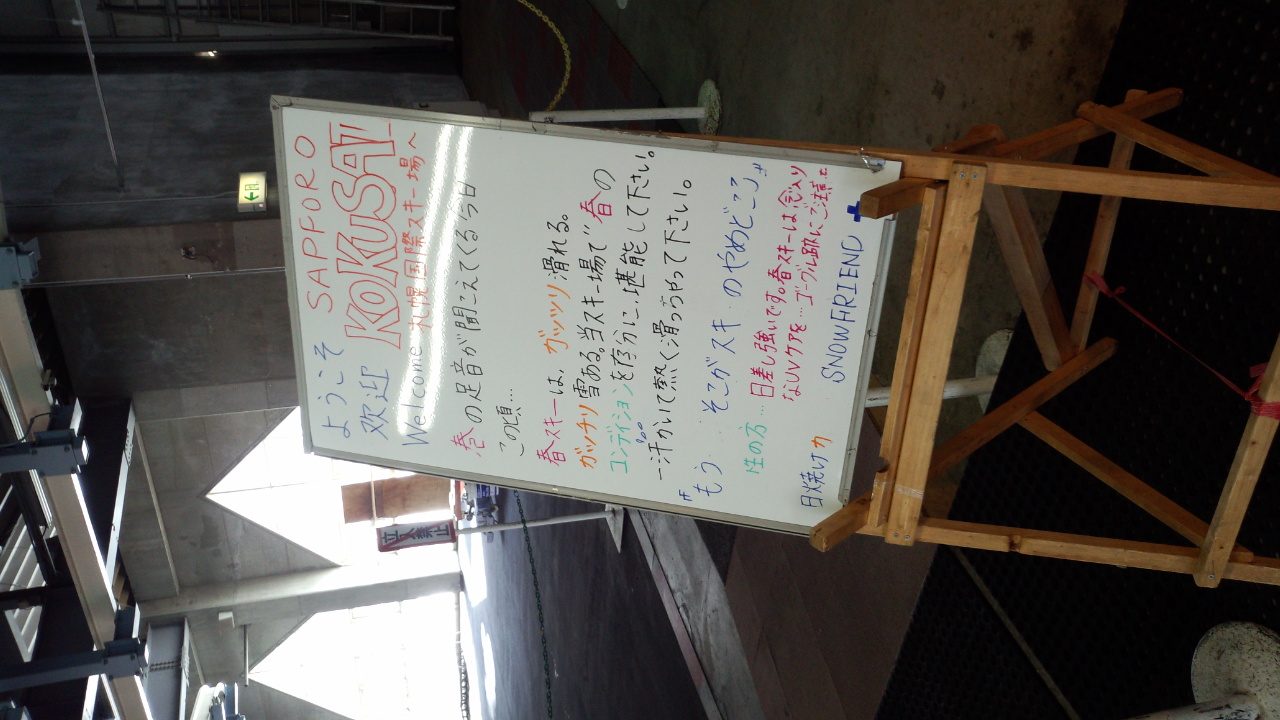 ようこそ SAPPORO
欢迎 KOKUSAI
Welcome 札幌国際スキー場へ
春の足音が聞こえてくる今日
この頃…
春スキーは、ガッツリ滑れる。
ガッチリ雪ある当スキー場で"春の
コンディションを存分に堪能して下さい。
一汗かいて熱く滑っちゃって下さい。
"もう そこがスキ のやめどころ"
性の方… 日差し強いです。春スキーは念入り
なUVケアを…ゴーグル跡にご注意を
日焼け SNOW FRIEND
立入禁止